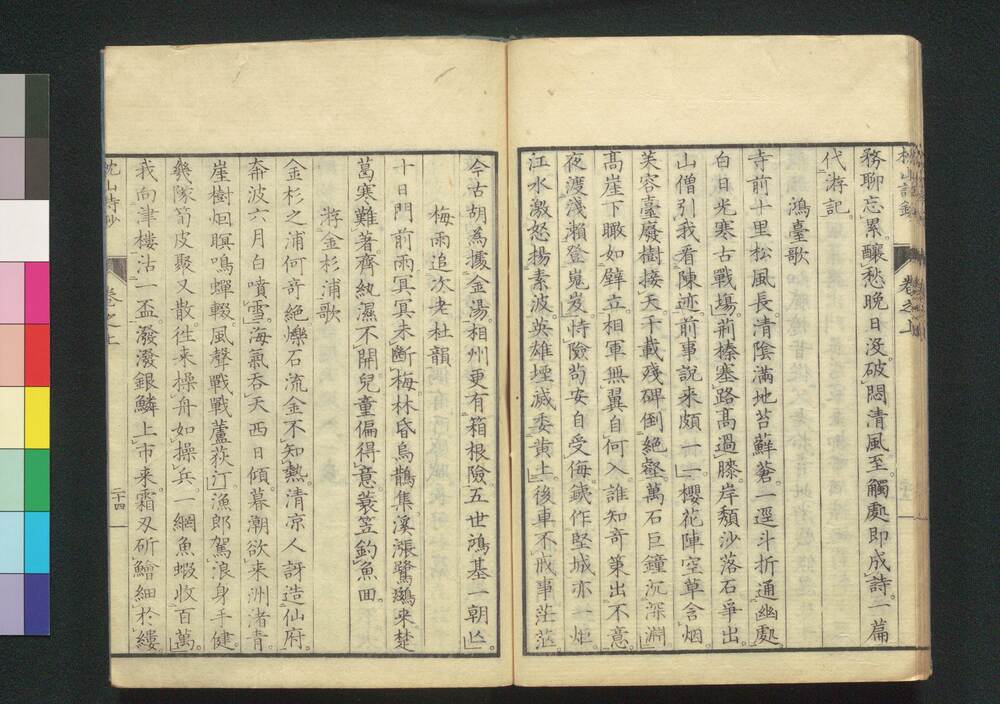 務聊忘累。釀愁晩日沒。破悶清風至。觸處即成詩。一篇
代游記
鴻臺歌
寺前十里松風長。清陰滿地苔蘚蒼。一逕斗折通幽處。
白日光寒古戰場。荊榛塞路高過膝。岸頽沙落石爭出。
山僧引我看陳迹。前事說來頗一一。櫻花陣空草含烟。
芙容臺廢樹接天。千載殘碑倒絕壑。萬石巨鐘沉深淵。
高崖下瞰如壁立。相軍無翼自何入。誰知奇策出不意。
夜渡淺瀨登嵬岌。恃險苟安自受侮。鐵作堅城亦一炬。
江水激怒揚素波。英雄堙滅委黄土。後車不戒事茫茫。
今古胡為據金湯。相州更有箱根險。五世鴻基一朝亾。
梅雨追次老杜韻
十日門前雨。冥冥未斷梅。林昏烏鵲集。溪漲鷺鷀来。楚
葛寒難著。齊紈濕不開。兒童偏得意。蓑笠釣魚回。
游金杉浦歌
金杉之浦何奇絕。爍石流金不知熱。清凉人訝造仙府。
奔波六月白噴雪。海氣吞天西日傾。暮潮欲来洲渚青。
崖樹烟暝鳴蟬輟。風聲戰戰蘆荻汀。漁郎駕浪身手健。
艨艟筋皮聚又散。往来操舟如操兵。一網魚蝦收百萬。
我向津樓沽一盃。潑潑銀鱗上市来。霜刃斫鱠細於縷。
枕山詩鈔
卷之上
二十四